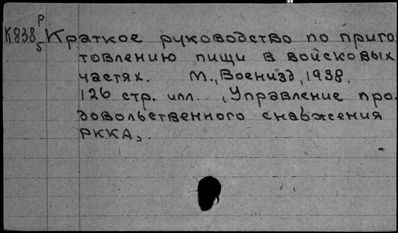 К838 р/5 Краткое руководство по приго
товлению пищи в войсковых
частях. М., Воениzд, 1938.
126 стр. илл. (Управление про-
довольственного снабжения
РККА).